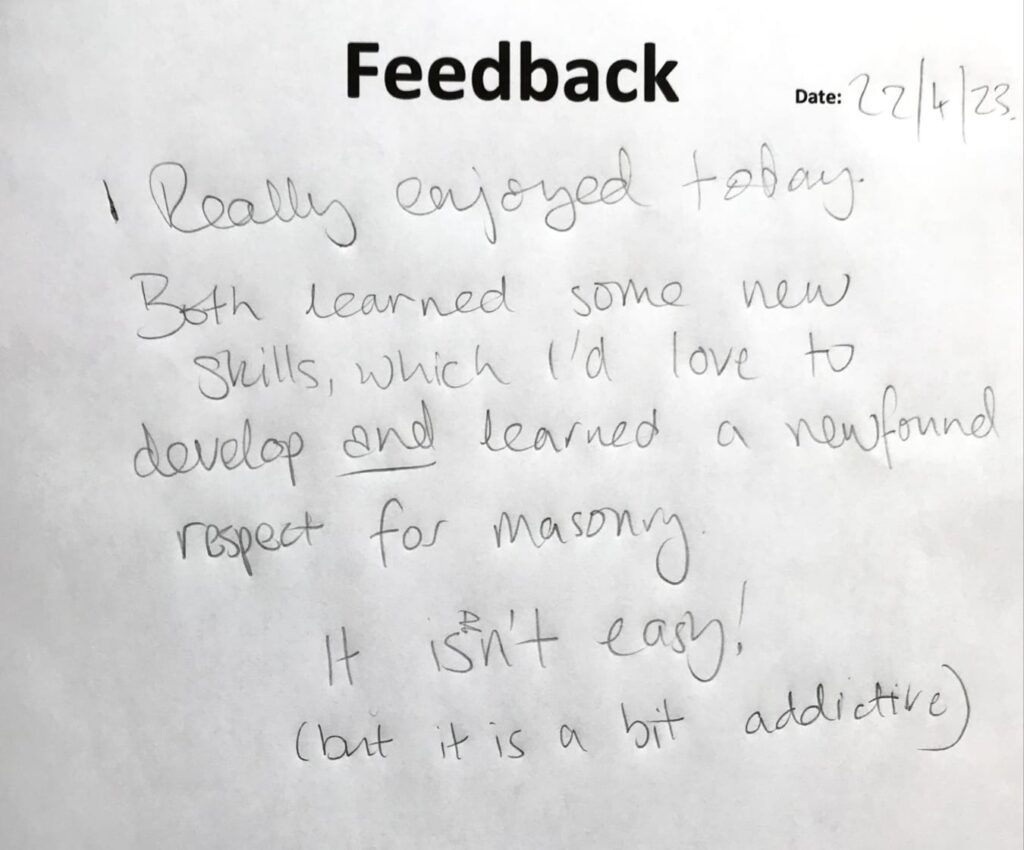 Feedback
Date: 22/4/23.
I Really enjoyed today.
Both learned some new
skills, which I'd love to
develop and learned a newfound
respect for masonry.
It isn't easy!
(but it is a bit addictive)